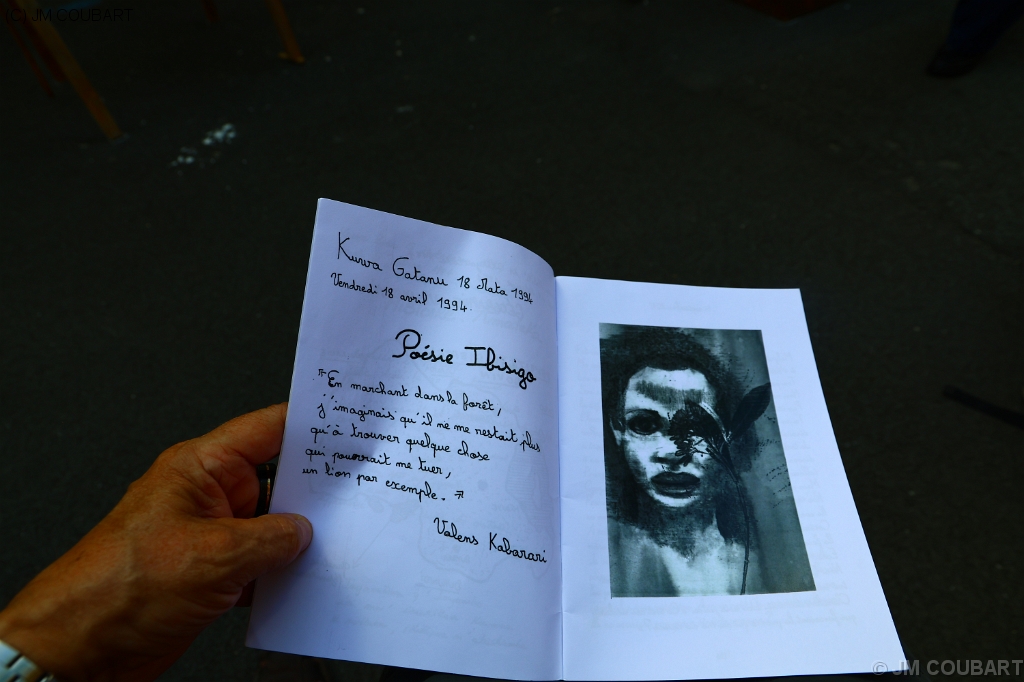 (C) JM COUBART
Kuwa Gatanu 18 Mata 1994
Vendredi 18 avril 1994.
Poésie Ibisigo
"En marchant dans la forêt,
j'imaginais qu'il ne me restait plus
qu'à trouver quelque chose
qui pourrait me tuer,
un lion par exemple."
Valens Kabarari
© JM COUBART